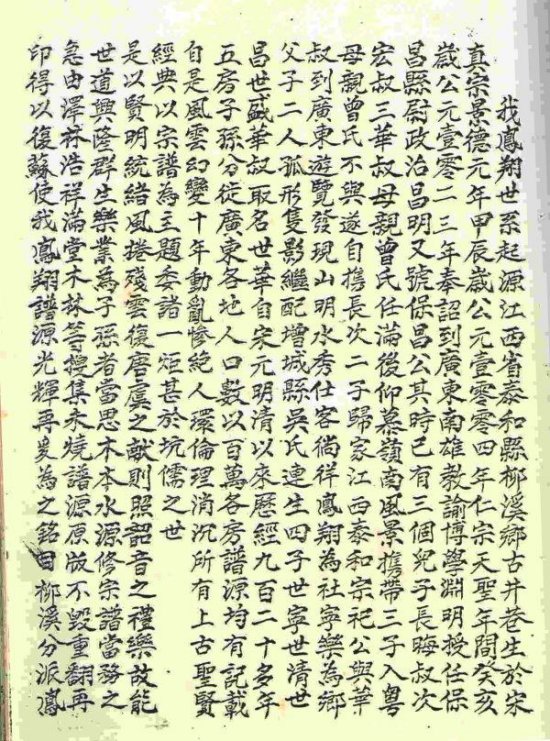 我鳳翔世系起源江西省泰和縣柳溪鄉古井巷生於宋
真宗景德元年甲辰歲公元壹零零四年仁宗天聖年間癸亥
歲公元壹零二三年奉詔到廣東南雄教諭博學淵明授任保
昌縣尉政治昌明又號保昌公其時已有三個兒子長晦叔次
宏叔三華叔母親曾氏任滿後仰慕嶺南風景攜帶三子入粵
母親曾氏不與遂自攜長次二子歸家江西泰和宗祀公與華
叔到廣東遊覽發現山明水秀仕客徜徉鳳翔為社寧樂為鄉
父子二人孤形隻影繼配增城縣吳氏連生四子世寧世清世
昌世盛華叔取名世華自宋元明清以來歷經九百二十多年
五房子孫分徙廣東各地人口數以百萬各房譜源均有記載
自是風雲幻變十年動亂慘絕人環倫理消沉所有上古聖賢
經典以宗譜為主題委諸一炬甚於坑儒之世
是以賢明統緒風捲殘雲復唐虞之猷則照韶音之禮樂故能
世道興隆群生樂業為子孫者當思木本水源修宗譜當務之
急由澤林浩祥滿堂木林等搜集未燒譜源原版不毀重翻再
印得以復蘇使我鳳翔譜源光輝再爰為之銘曰柳溪分派鳳